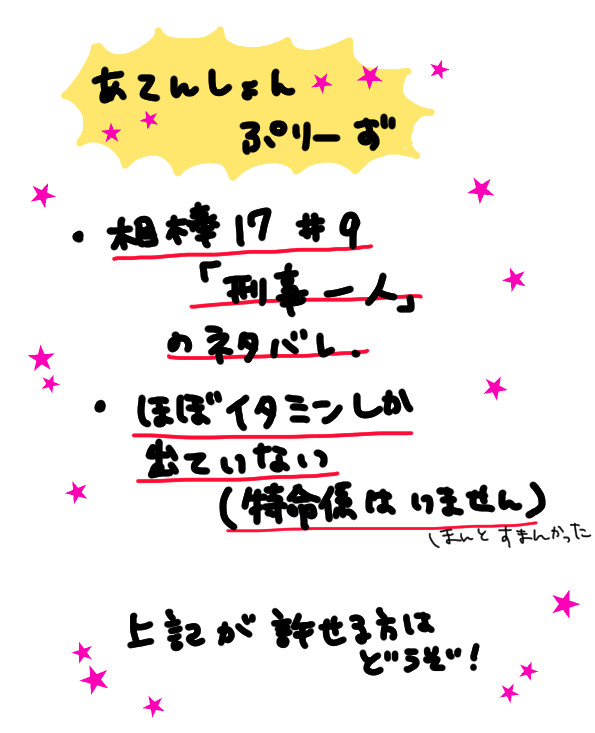 あてんしょん
ぷりーず
・相棒17#9
「刑事一人」
のネタバレ.
・ほぼイタミンしか
出ていない
(特命係はいません)
ほんとすまんかった
上記が許せる方は
どうぞ!